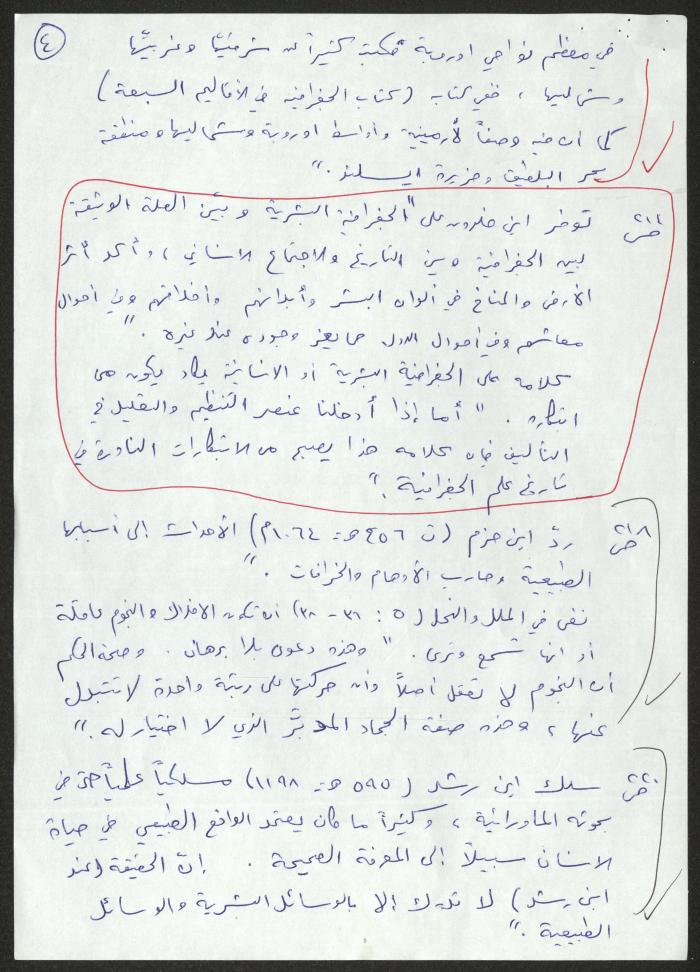 ٤
في معظم نواحي اوروبة فكتب كثيراً عن شرقيّها وغربيّها
وشماليها ، ففي كتابه (كتاب الجغرافيه في الأقاليم السبعة)
كما أن فيه وصفاً لأرمينية وأواسط اوروبة وشماليها ومنطقة
بحر البلطيق وجزيرة ايسلند ."
ص ٢١١ توفر ابن خلدون على "الجغرافية البشرية وبيّن الصلة الوثيقة
بين الجغرافية وبين التاريخ والاجتماع الانساني ، وأكد أثر
الأرض والمناخ في ألوان البشر وأبدانهم وأخلاقهم وفي احوال
معاشهم وفي أحوال الدول مما يعز وجوده عند غيره ."
كلامه على الجغرافية البشرية أو الانسانية يكاد يكون من
ابتكاره . " أما إذا أدخلنا عنصر التنظيم والتعليل في
التأليف فإن كلامه هذا يصبح من الابتكارات النادرة في
تاريخ علم الجغرافية ."
ص ٢١٨ ردّ ابن حزم (ت ٤٥٦ هـ = ١٠٦٤م) الأحداث إلى أسبابها
الطبيعية وحارب الأوهام والخرافات ."
نفى في الملل والنحل (٥ : ٣٦ - ٣٨) أن تكون الافلاك والنجوم عاقلة
أو انها تسمع وترى . " وهذه دعوى بلا برهان . وصحة الحكم
أن النجوم لا تعقل أصلاً وأن حركتها على رتبة واحدة لا تتبدل
عنها ، وهذه صفة الجماد المدبَّر الذي لا اختيار له ."
ص ٢٢٠ سلك ابن رشد (٥٩٥ هـ = ١١٩٨) مسلكياً عملياً حتى في
بحوثه الماورائية ، وكثيراً ما كان يعتمد الواقع الطبيعي في حياة
الانسان سبيلاً إلى المعرفة الصحيحة . إنّ الحقيقة (عند
ابن رشد) لا تدرك إلا بالوسائل البشرية والوسائل
الطبيعية ."